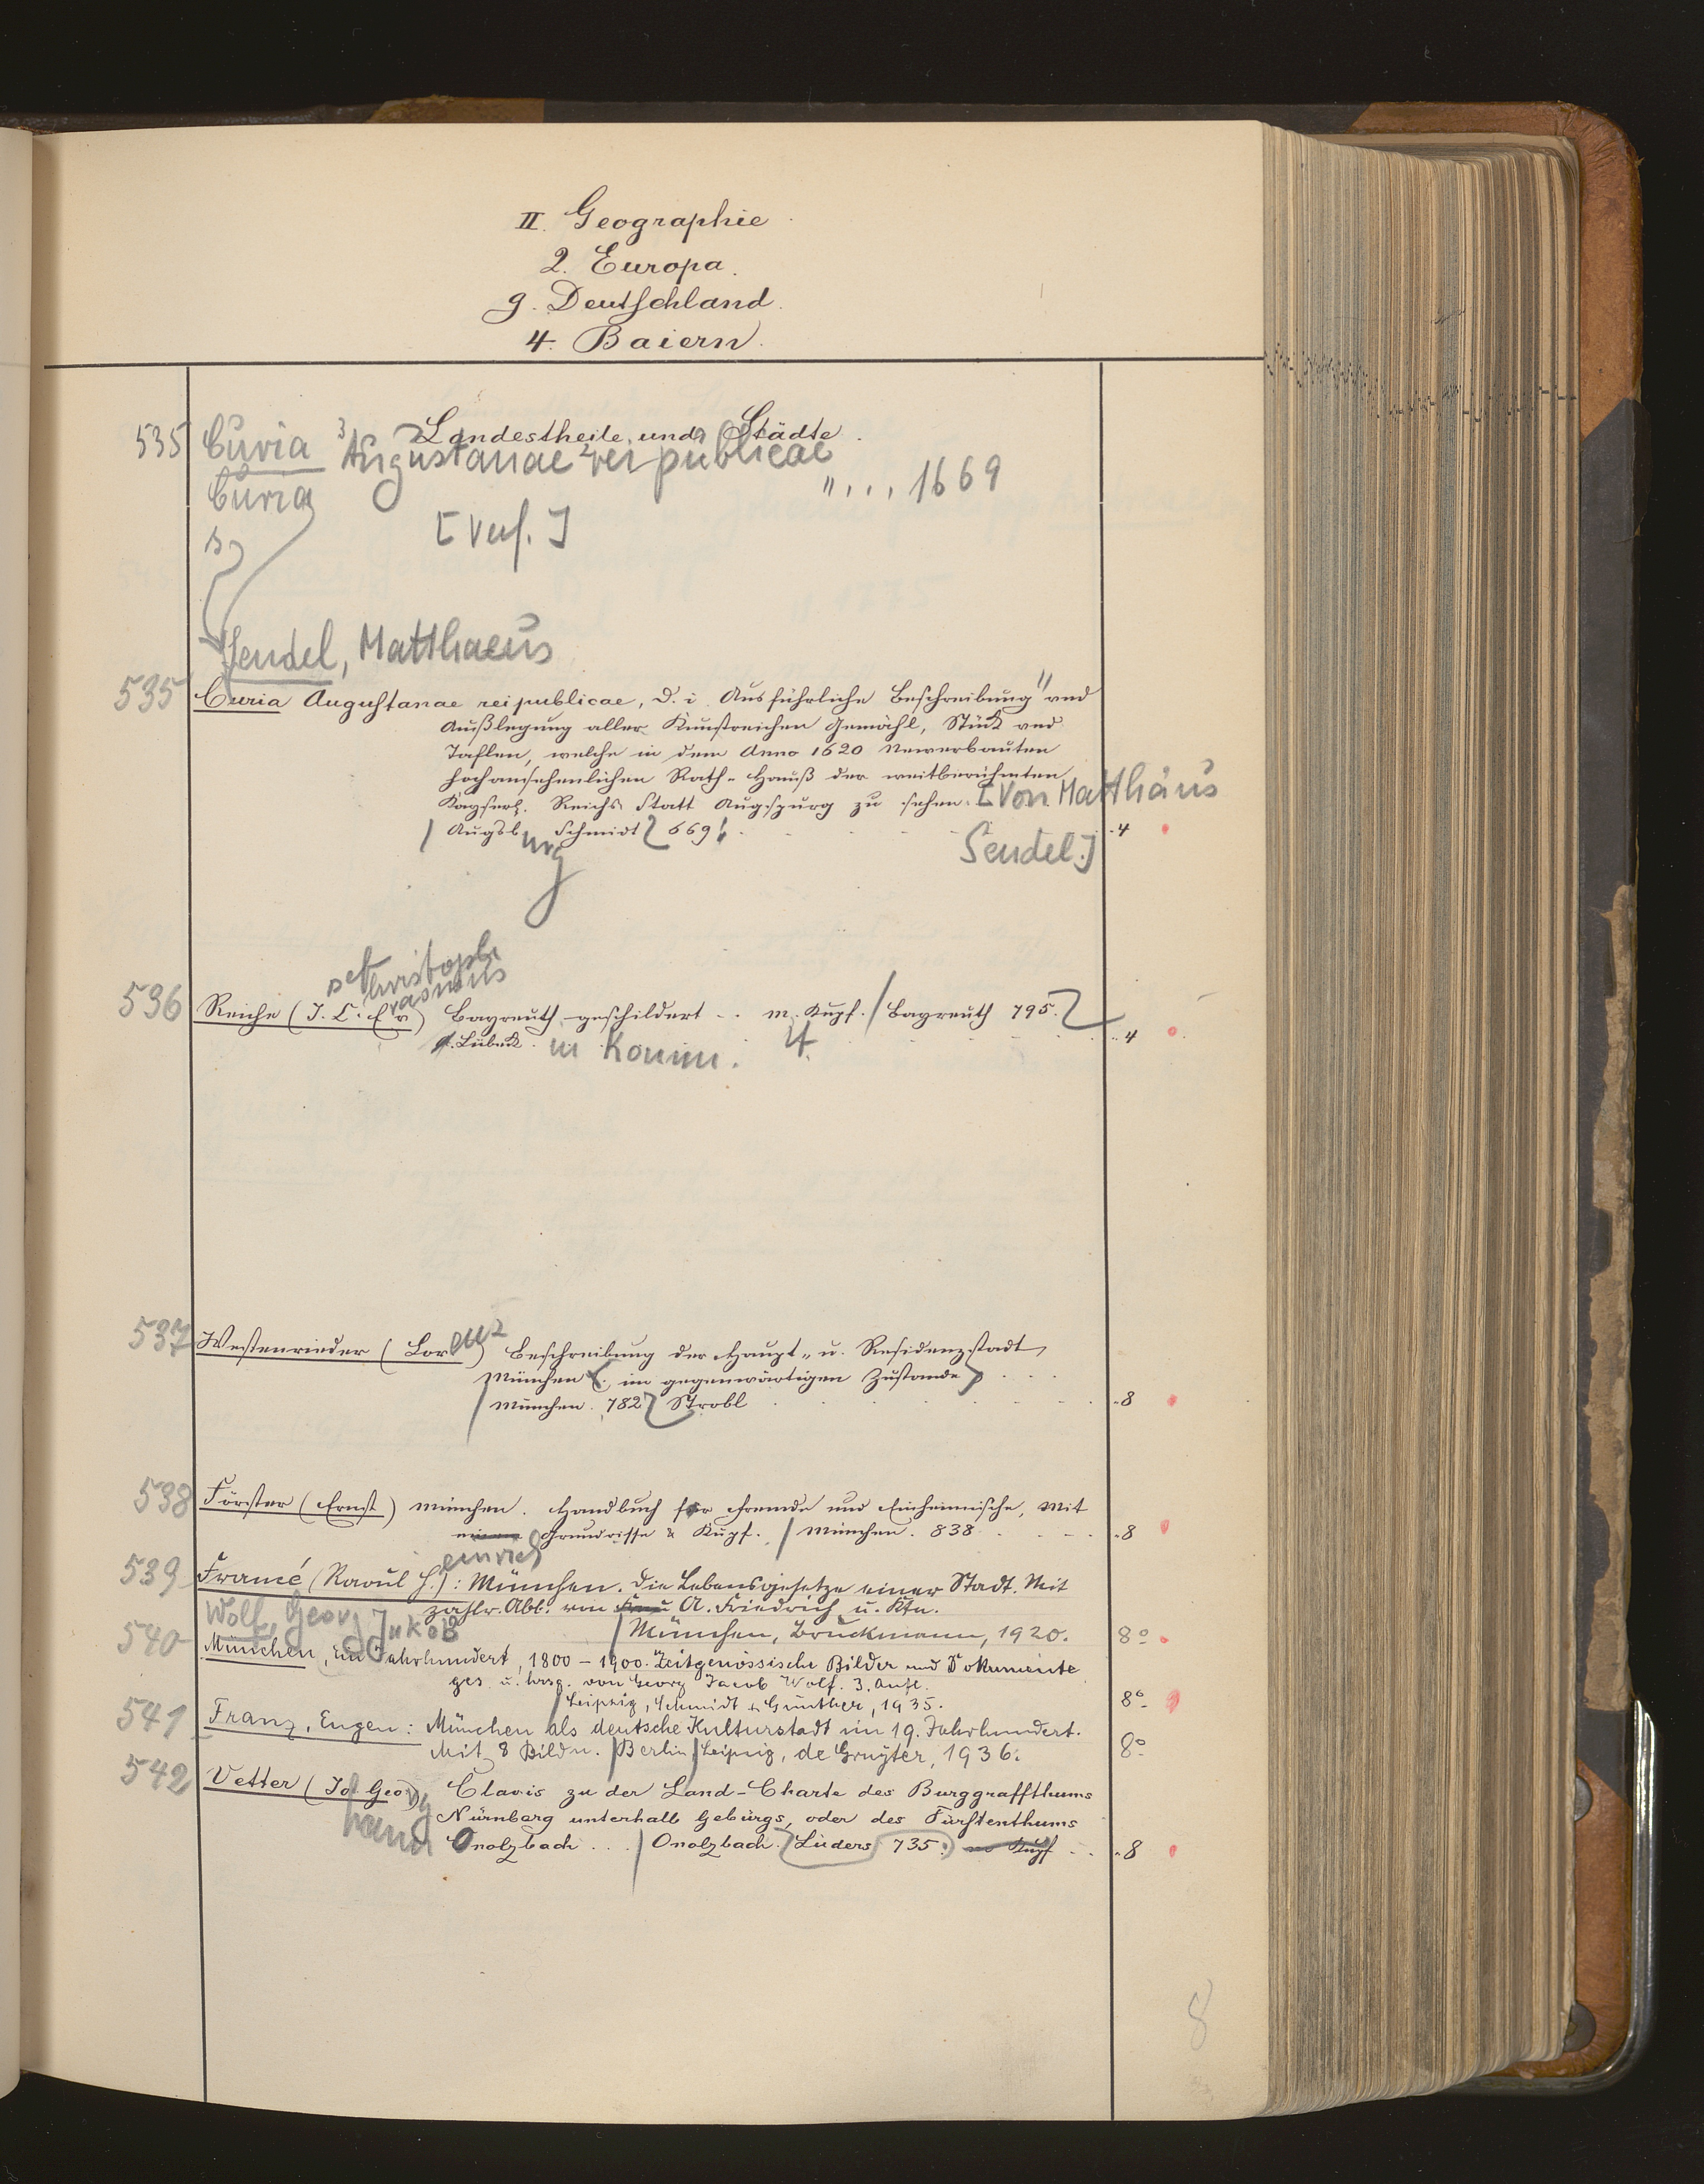 II. Geographie
2. Europa.
g. Deutschland.
4. Baiern.
Landestheile und Städte.
535 Curia Augustanae rei publicae
Curia "... 1669
[Verf.]
s
Sendel, Matthaeus
535 Curia Augustanae reipublicae, d. i. Ausführliche Beschreibung und
Außlegung aller Kunstreichen Gemähl, Stück und
Taflen, welche in dem Anno 1620 Newerbauten
hochansehenlichen Rath-Hauß der weitberühmten
Kayserl. Reichs Statt Augspurg zu sehen. [Von Matthäus
Augsburg Schmidt 669. 4
Sendel.]
Christoph
Erasmus
536 Reiche (J. C. Er) Bayreuth geschildert .. m. Kupf. / Bayreuth 795.
Lübeck. in Komm. 4. 4
537 Westenrieder (Lorenz) Beschreibung der Haupt- u. Residenzstadt
München (im gegenwärtigen Zustande)
München. 782 Strobl 8
538 Förster (Ernst) München. Handbuch für Fremde und Einheimische, mit
einem Grundrisse & Kupf. / München. 838. 8
einrich
539 Francé (Raoul H.): München. Die Lebensgesetze einer Stadt. Mit
zahlr. Abb. von A. Friedrich u. Ktn.
München, Bruckmann, 1920. 8°
Wolf, Georg Jakob
540 München, Ein Jahrhundert, 1800-1900. Zeitgenössische Bilder und Dokumente
ges. u. hrsg. von Georg Jacob Wolf. 3. Aufl.
Leipzig, Schmidt & Günther, 1935. 8°
541 Franz, Eugen: München als deutsche Kulturstadt im 19. Jahrhundert.
Mit 8 Bildn. / Berlin / Leipzig, de Gruyter, 1936. 8°
542 Vetter (Joh Georg) Clavis zu der Land-Charte des Burggraffthums
hann Nürnberg unterhalb Gebürgs, oder des Fürstenthums
Onolzbach ... / Onolzbach. Lüders 735. m Kupf .. 8
8